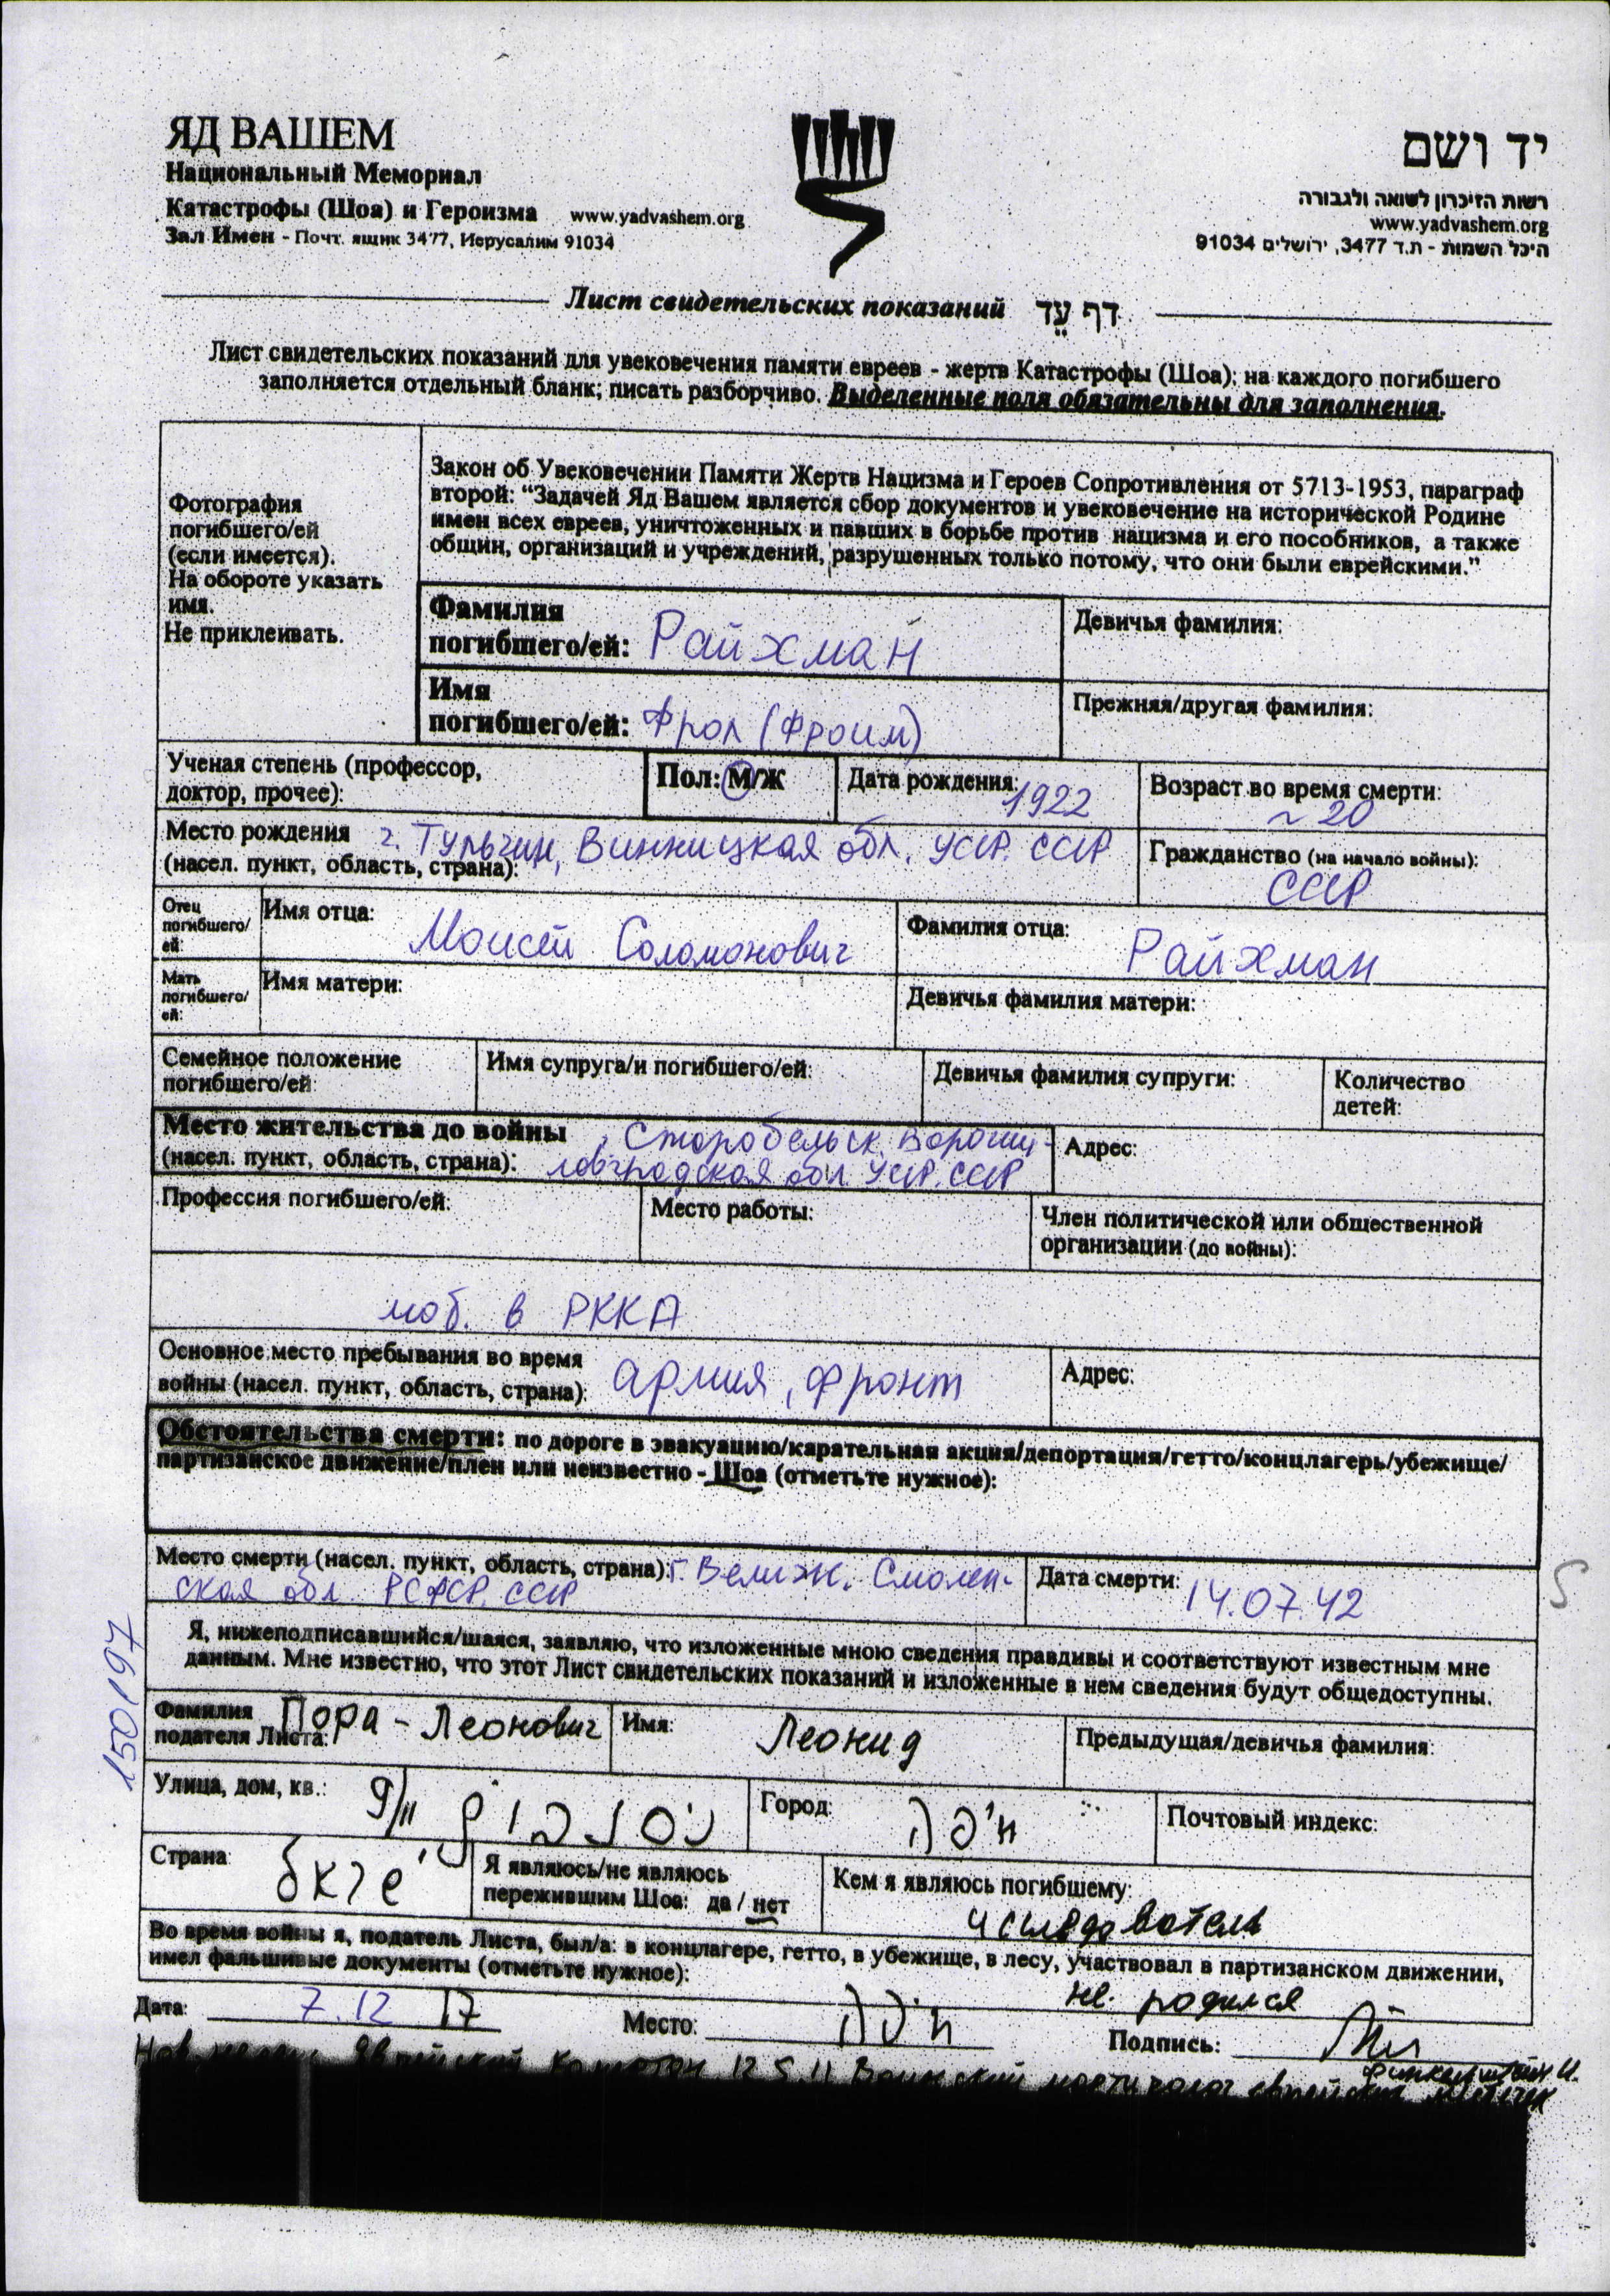 ЯД ВАШЕМ
Национальный Мемориал
Катастрофы (Шоа) и Героизма www.yadvashem.org
Зал Имен - Почт. ящик 3477, Иерусалим 91034
יד ושם
רשות הזיכרון לשואה ולגבורה
www.yadvashem.org
היכל השמות - ת.ד 3477, ירושלים 91034
Лист свидетельских показаний דף עֵד
Лист свидетельских показаний для увековечения памяти евреев - жертв Катастрофы (Шоа); на каждого погибшего
заполняется отдельный бланк; писать разборчиво. Выделенные поля обязательны для заполнения.
Фотография
погибшего/ей
(если имеется).
На обороте указать
имя.
Не приклеивать.
Закон об Увековечении Памяти Жертв Нацизма и Героев Сопротивления от 5713-1953, параграф
второй: “Задачей Яд Вашем является сбор документов и увековечение на исторической Родине
имен всех евреев, уничтоженных и павших в борьбе против нацизма и его пособников, а также
общин, организаций и учреждений, разрушенных только потому, что они были еврейскими.”
Фамилия
погибшего/ей: Райхман
Девичья фамилия:
Имя
погибшего/ей: Фрол (Фроим)
Прежняя/другая фамилия:
Ученая степень (профессор,
доктор, прочее):
Пол: М/Ж
Дата рождения: 1922
Возраст во время смерти:
~ 20
Место рождения г. Тульчин, Винницкая обл. УССР. СССР
(насел. пункт, область, страна):
Гражданство (на начало войны):
СССР
Отец
погибшего/
ей:
Имя отца: Моисей Соломонович
Фамилия отца: Райхман
Мать
погибшего/
ей:
Имя матери:
Девичья фамилия матери:
Семейное положение
погибшего/ей:
Имя супруга/и погибшего/ей:
Девичья фамилия супруги:
Количество
детей:
Место жительства до войны г. Старобельск, Вороши-
(насел. пункт, область, страна): ловградская обл. УССР. СССР
Адрес:
Профессия погибшего/ей:
Место работы:
Член политической или общественной
организации (до войны):
моб. в РККА
Основное место пребывания во время
войны (насел. пункт, область, страна): армия, фронт
Адрес:
Обстоятельства смерти: по дороге в эвакуацию/карательная акция/депортация/гетто/концлагерь/убежище/
партизанское движение/плен или неизвестно - Шоа (отметьте нужное):
Место смерти (насел. пункт, область, страна): г. Велиж, Смолен-
ская обл. РСФСР. СССР
Дата смерти: 14.07.42
Я, нижеподписавшийся/шаяся, заявляю, что изложенные мною сведения правдивы и соответствуют известным мне
данным. Мне известно, что этот Лист свидетельских показаний и изложенные в нем сведения будут общедоступны.
150197
Фамилия
подателя Листа: Пора-Леонович
Имя: Леонид
Предыдущая/девичья фамилия:
Улица, дом, кв.: 9/11
Город: חיפה
Почтовый индекс:
Страна:
Я являюсь/не являюсь
пережившим Шоа: да / нет
Кем я являюсь погибшему:
исследователь
Во время войны я, податель Листа, был/а: в концлагере, гетто, в убежище, в лесу, участвовал в партизанском движении,
имел фальшивые документы (отметьте нужное):
не родился
Дата: 7.12 17
Место: חיפה
Подпись: